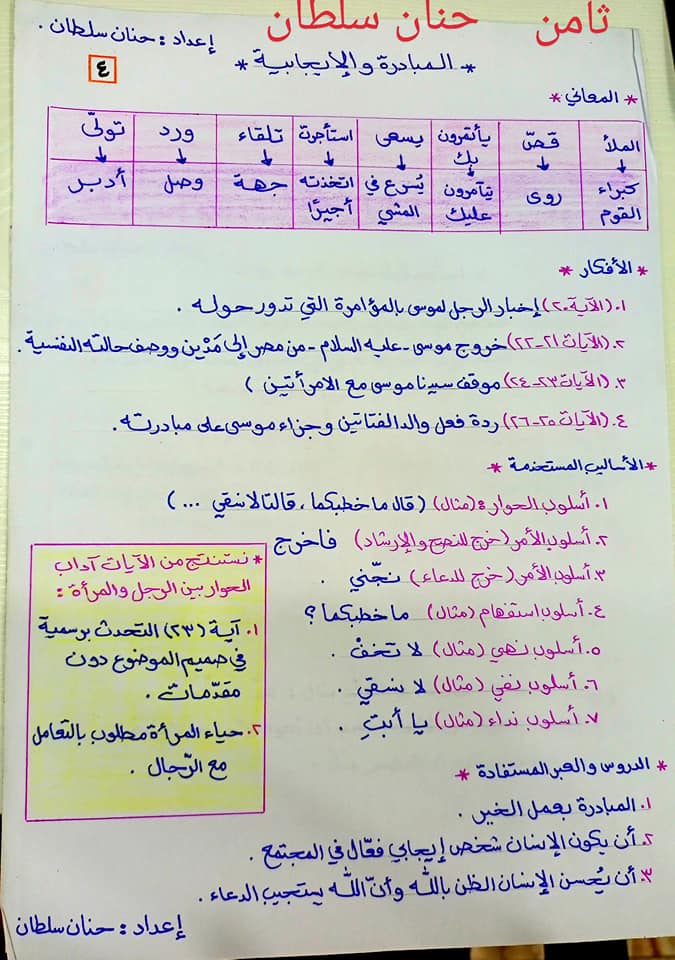 ثامن حنان سلطان
إعداد : حنان سلطان .
* المبادرة والإيجابية *
٤
* المعاني *
الملأ قصّ يأتمرون بك يسعى استأجرت تلقاء ورد تولّى
كبراء القوم روى يتآمرون عليك يُسرع في المشي اتخذته أجيرًا جهة وصل أدبر
* الأفكار *
١. (الآية ٢٠) إخبار الرجل لموسى بالمؤامرة التي تدور حوله .
٢. (الآيات ٢١-٢٢) خروج موسى - عليه السلام - من مصر إلى مَدْين ووصف حالته النفسية .
٣. (الآيات ٢٣-٢٤) موقف سيدنا موسى مع الامرأتين )
٤. (الآيات ٢٥-٢٦) ردة فعل والد الفتاتين وجزاء موسى على مبادرته .
* الأساليب المستخدمة *
١. أسلوب الحوار : (مثال) ( قال ما خطبكما ، قالتا لا نسقي ... )
٢. أسلوب الأمر (خرج للنصح والإرشاد) فاخرج
٣. أسلوب الأمر (خرج للدعاء) نجّني .
٤. أسلوب استفهام (مثال) ما خطبكما ؟
٥. أسلوب نهي (مثال) لا تخفْ .
٦. أسلوب نفي (مثال) لا نسقي .
٧. أسلوب نداء (مثال) يا أبتِ
* نستنتج من الآيات آداب
الحوار بين الرجل والمرأة :
١. آية (٢٣) التحدث برسمية
في صميم الموضوع دون
مقدّمات .
٢. حياء المرأة مطلوب بالتعامل
مع الرّجال .
* الدروس والعبر المستفادة *
١. المبادرة بعمل الخير .
٢. أن يكون الإنسان شخص إيجابي فعّال في المجتمع .
٣. أن يُحسن الإنسان الظن بالله وأنّ الله يستجيب الدعاء .
إعداد : حنان سلطان